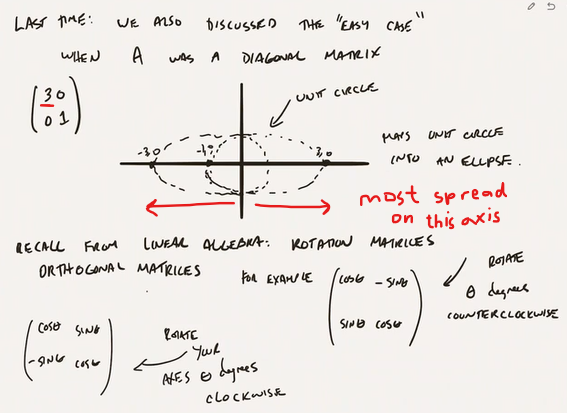 LAST TIME: WE ALSO DISCUSSED THE "EASY CASE"
WHEN A WAS A DIAGONAL MATRIX
3 0
0 1
UNIT CIRCLE
-3,0 -1,0 3,0
MAPS UNIT CIRCLE
INTO AN ELLIPSE.
most spread
on this axis
RECALL FROM LINEAR ALGEBRA: ROTATION MATRICES
ORTHOGONAL MATRICES
FOR EXAMPLE
cosθ -sinθ
sinθ cosθ
ROTATE
θ degrees
COUNTERCLOCKWISE
cosθ sinθ
-sinθ cosθ
ROTATE
YOUR
AXES θ degrees
CLOCKWISE